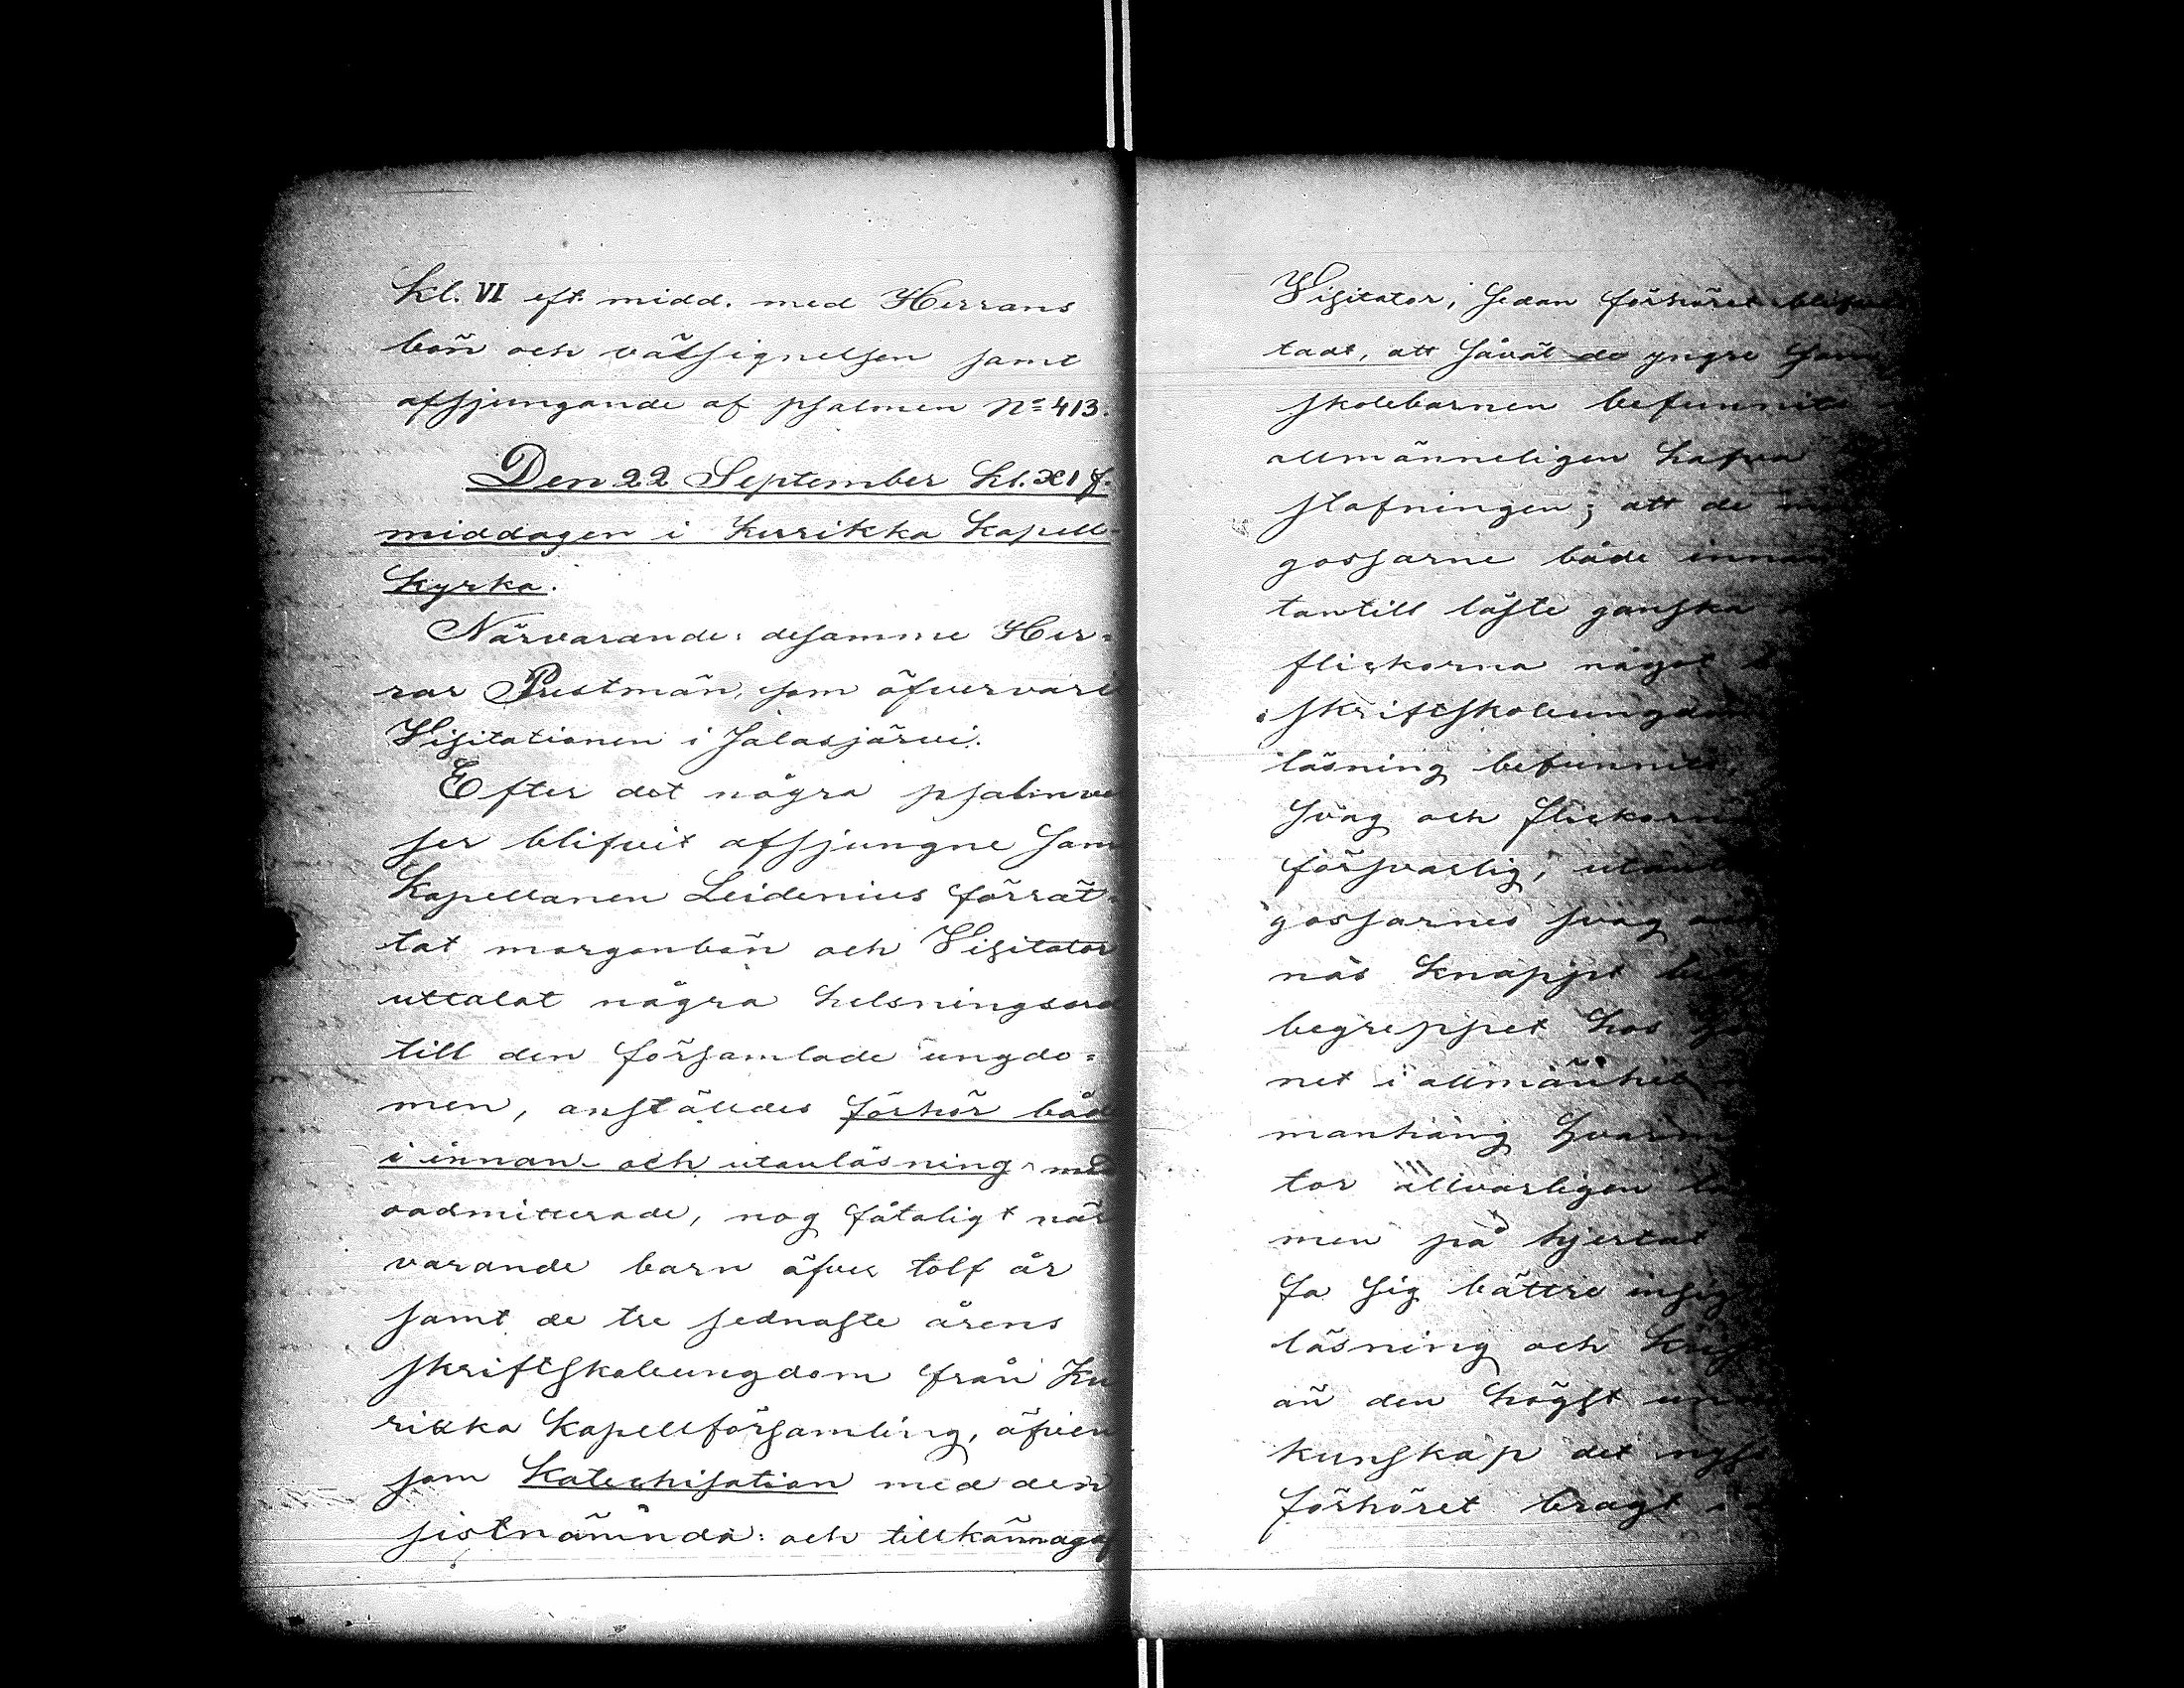 kl. VI eft. midd. med Herrans
bön och välsignelsen samt
afsjungande af psalmen No 413.
Den 22 September kl. XI f.
middagen i Kurikka Kapell-
kyrka.
Närvarande: desamme Her-
rar Prestmän, som öfvervarit
Visitationen i Jalasjärvi.
Efter det några psalmver
ser blifvit afsjungne samt
Kapellanen Leidenius förrät-
tat morgonbön och Visitator
uttalat några helsningsord
till den församlade ungdo-
men, anställdes förhör både
i innan- och utanläsning med
oadmitterade, nog fåtaligt när
varande barn öfver tolf år
samt de tre sednaste årens
skriftskoleungdom från Ku
rikka Kapellförsamling, äfven
som Katechisation med den
sistnämnda: och tillkännagaf
Visitator, sedan förhöret blifvit
tadt, att såväl de yngre som
skolebarnen befunnits
allmänneligen hafva
stafningen; att de
gossarne både innan
tantill läste ganska
flickorna något
skriftskoleungdom
läsning befunnits
svag och flickorna
försvarlig,
gossarnes svag
nas knappt
begreppet hos
net i allmänhet
manhäng
tor allvarligen
men på hjertat
fa sig bättre insigt
läsning och
än den högst
kunskap det
förhöret bragt